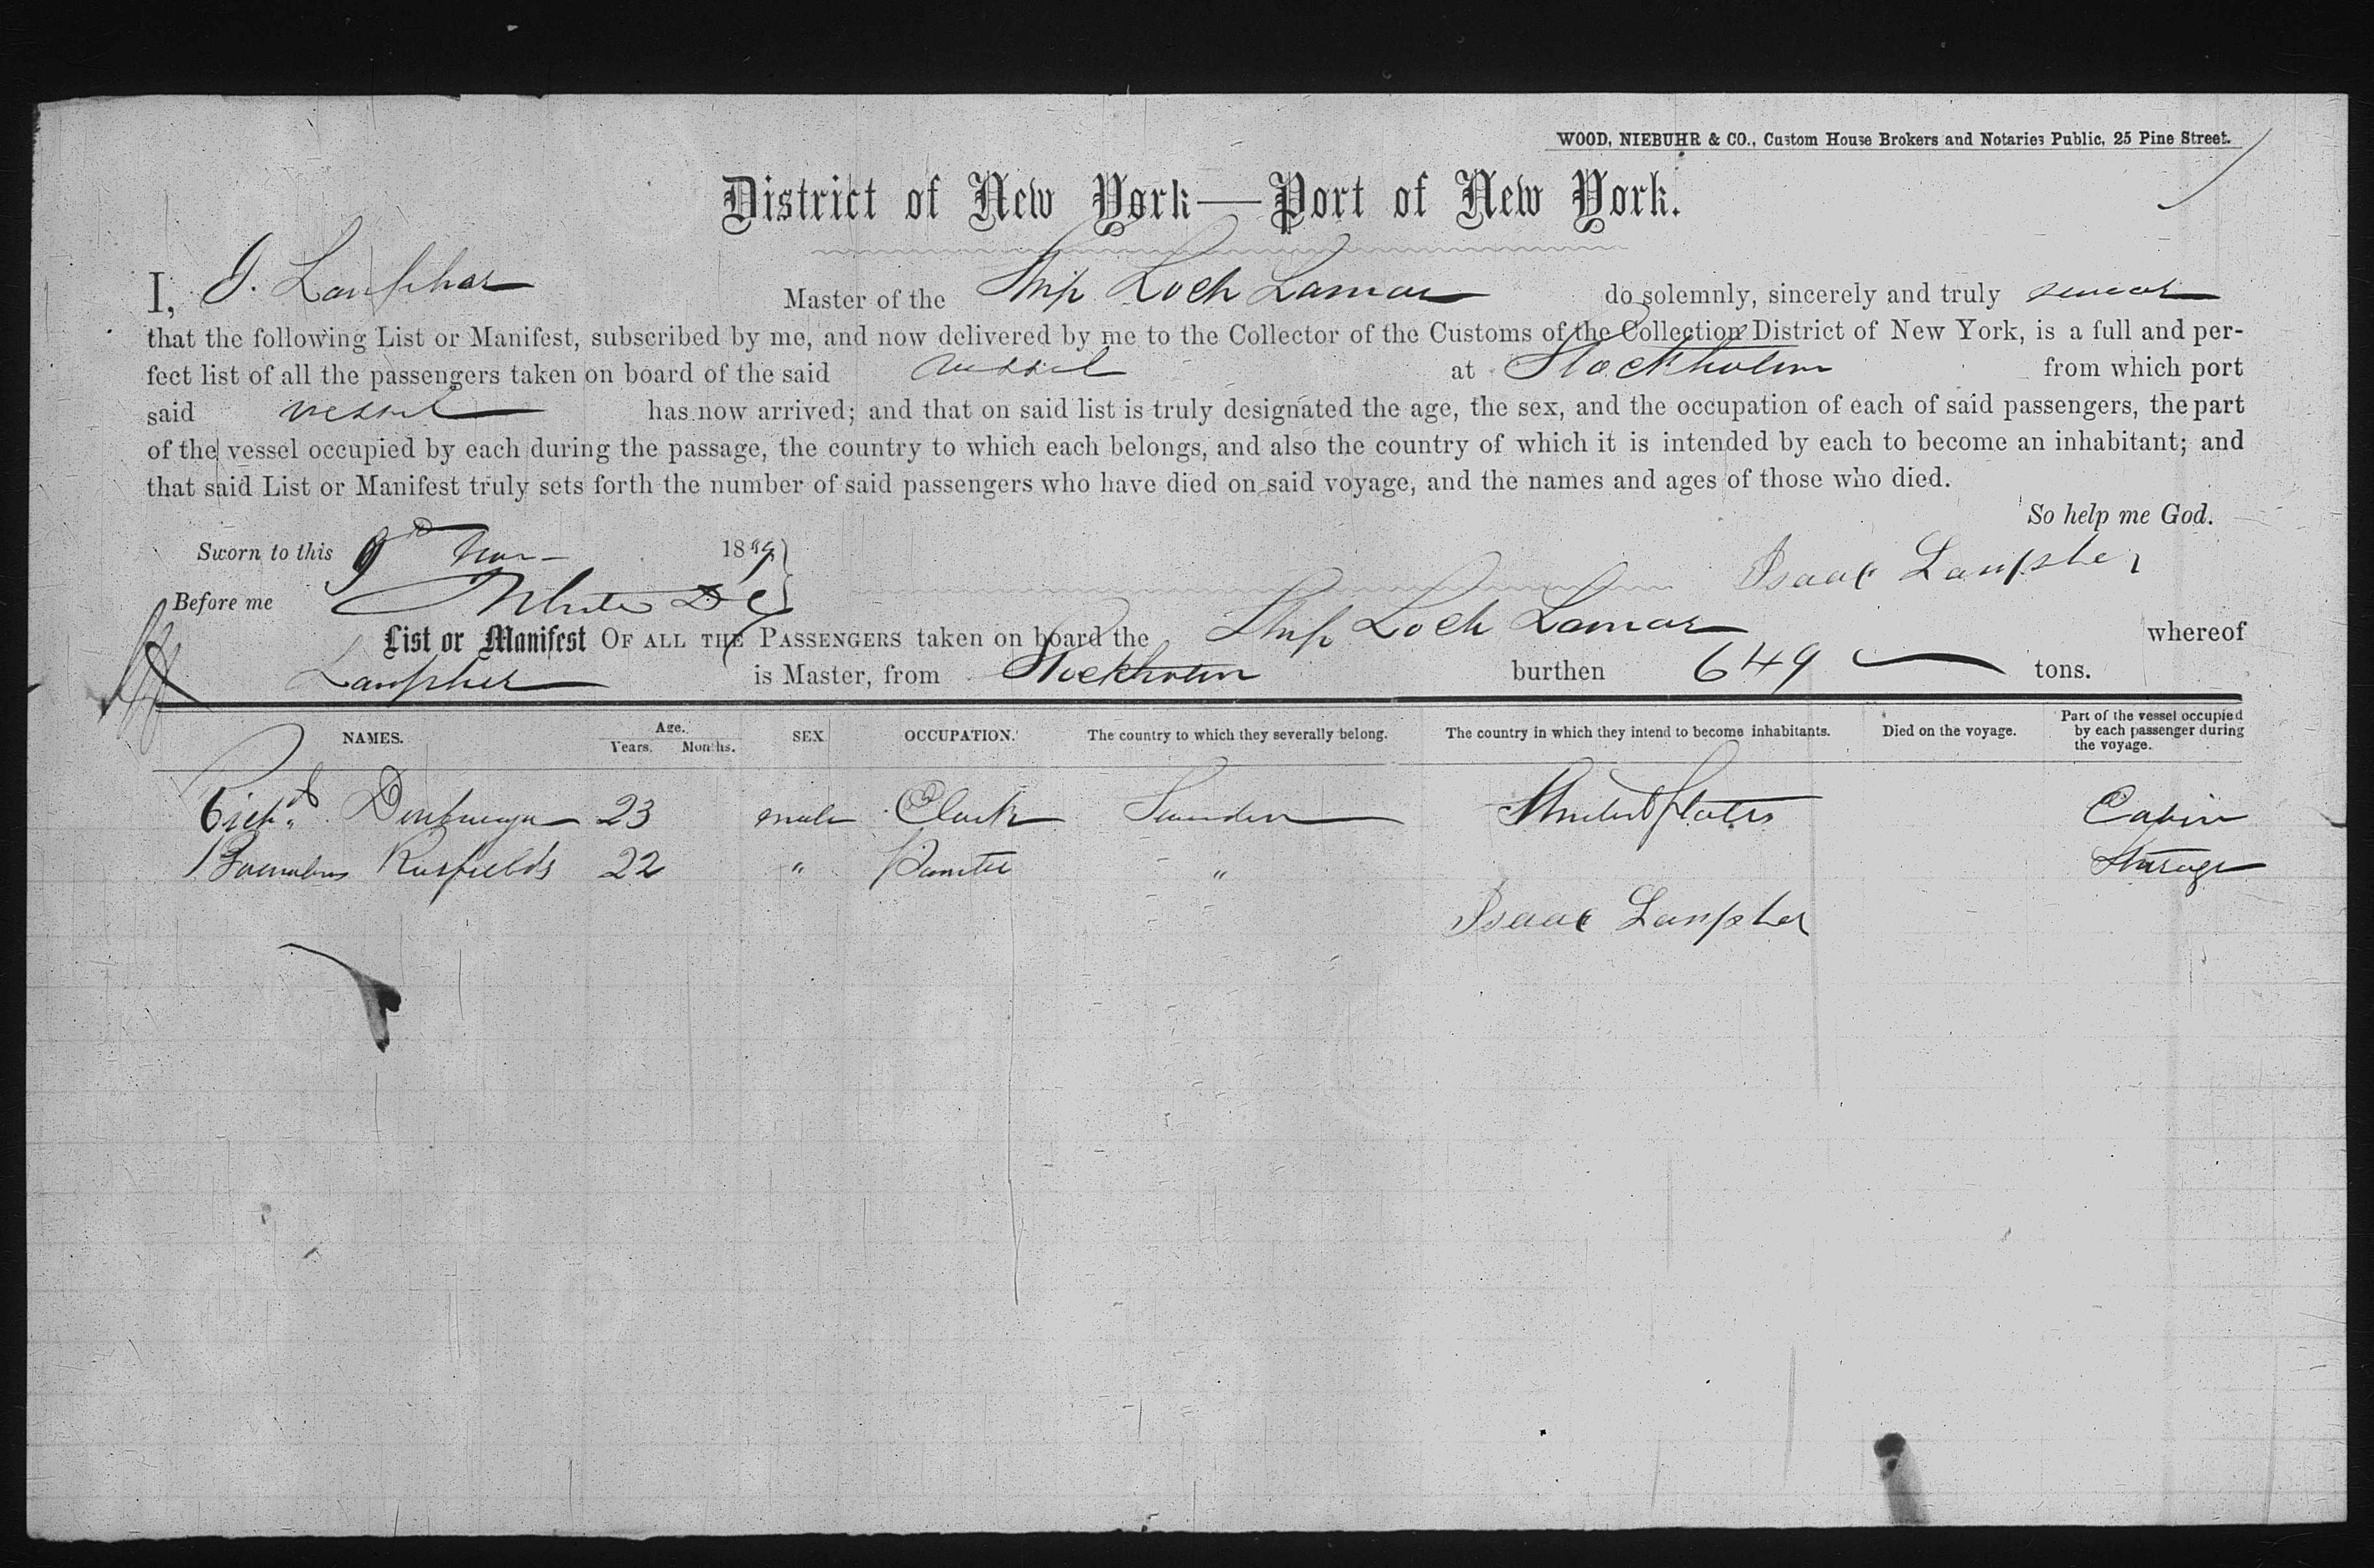 WOOD, NIEBUHR & CO., Custom House Brokers and Notaries Public, 25 Pine Street.
District of New York—Port of New York.
I, J. Lanphar Master of the Ship Loch Lamar do solemnly, sincerely and truly swear
that the following List or Manifest, subscribed by me, and now delivered by me to the Collector of the Customs of the Collection District of New York, is a full and per-
fect list of all the passengers taken on board of the said vessel at Stockholm from which port
said vessel has now arrived; and that on said list is truly designated the age, the sex, and the occupation of each of said passengers, the part
of the vessel occupied by each during the passage, the country to which each belongs, and also the country of which it is intended by each to become an inhabitant; and
that said List or Manifest truly sets forth the number of said passengers who have died on said voyage, and the names and ages of those who died.
So help me God.
Sworn to this 9th 18 Isaac Lanpher
Before me
List or Manifest OF ALL THE PASSENGERS taken on board the Ship Loch Lamar whereof
Lanpher is Master, from Stockholm burthen 649 tons.
NAMES. Age. Years. Months. SEX OCCUPATION. The country to which they severally belong. The country in which they intend to become inhabitants. Died on the voyage. Part of the vessel occupied by each passenger during the voyage.
23 male Clerk Sweden United States Cabin
22 " " Steerage
Isaac Lanpher